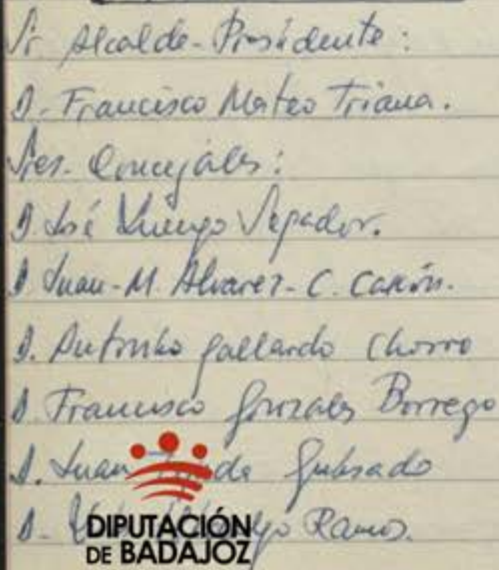 Sr. Alcalde-Presidente:
D. Francisco Mateo Triana.
Sres. Concejales:
D. José Luengo
D. Juan-M. Alvarez-C. Carrón.
D. Antonio Gallardo Chorro
D. Francisco Gonzales Borrego
D. Juan
D. Ramos.
DIPUTACIÓN
DE BADAJOZ